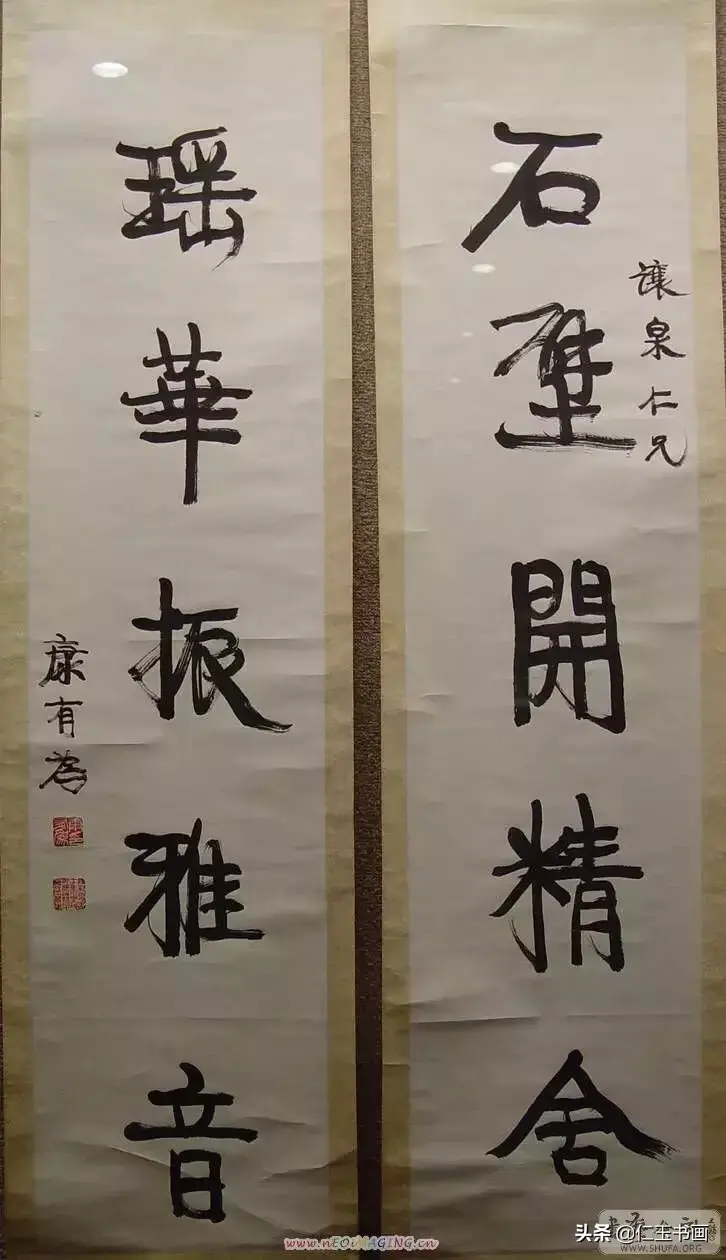 石壁開精舍
讓泉仁兄
瑤華振雅音
康有為
www.nEOiMAGING.cn
头条@仁玉书画
WWW.SHUFA.ORG